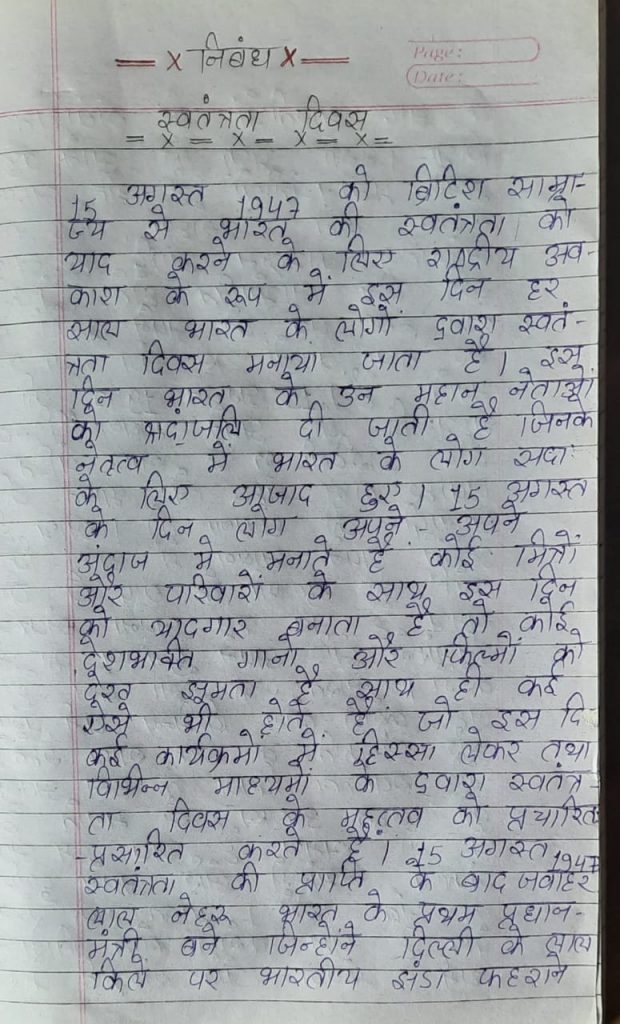 Page:
Date:
= x निबंध x =
स्वतंत्रता दिवस
= x = x - x = x =
15 अगस्त 1947 को ब्रिटिश साम्रा-
ज्य से भारत की स्वतंत्रता को
याद करने के लिए राष्ट्रीय अव-
काश के रूप में इस दिन हर
साल भारत के लोगों द्वारा स्वतं-
त्रता दिवस मनाया जाता है। इस
दिन भारत के उन महान नेताओं
को श्रदांजलि दी जाती है जिनके
नेतृत्व में भारत के लोग सदा
के लिए आजाद हुए। 15 अगस्त
के दिन लोग अपने - अपने
अंदाज मे मनाते है कोई मित्रों
और परिवारों के साथ इस दिन
को यादगार बनाता है तो कोई
देशभक्ति गानो और फिल्मों को
देख झुमता है साथ ही कई
ऐसे भी होते है जो इस दि-
कई कार्यक्रमो में हिस्सा लेकर तथा
विभिन्न माध्यमों के द्वारा स्वतंत्र-
ता दिवस के महत्तव को प्रचारित
-प्रसारित करते है। 15 अगस्त 1947
स्वतंत्रता की प्राप्ति के बाद जवाहर
लाल नेहरू भारत के प्रथम प्रधान-
मंत्री बने जिन्होंने दिल्ली के लाल
किले पर भारतीय झंडा फहराने